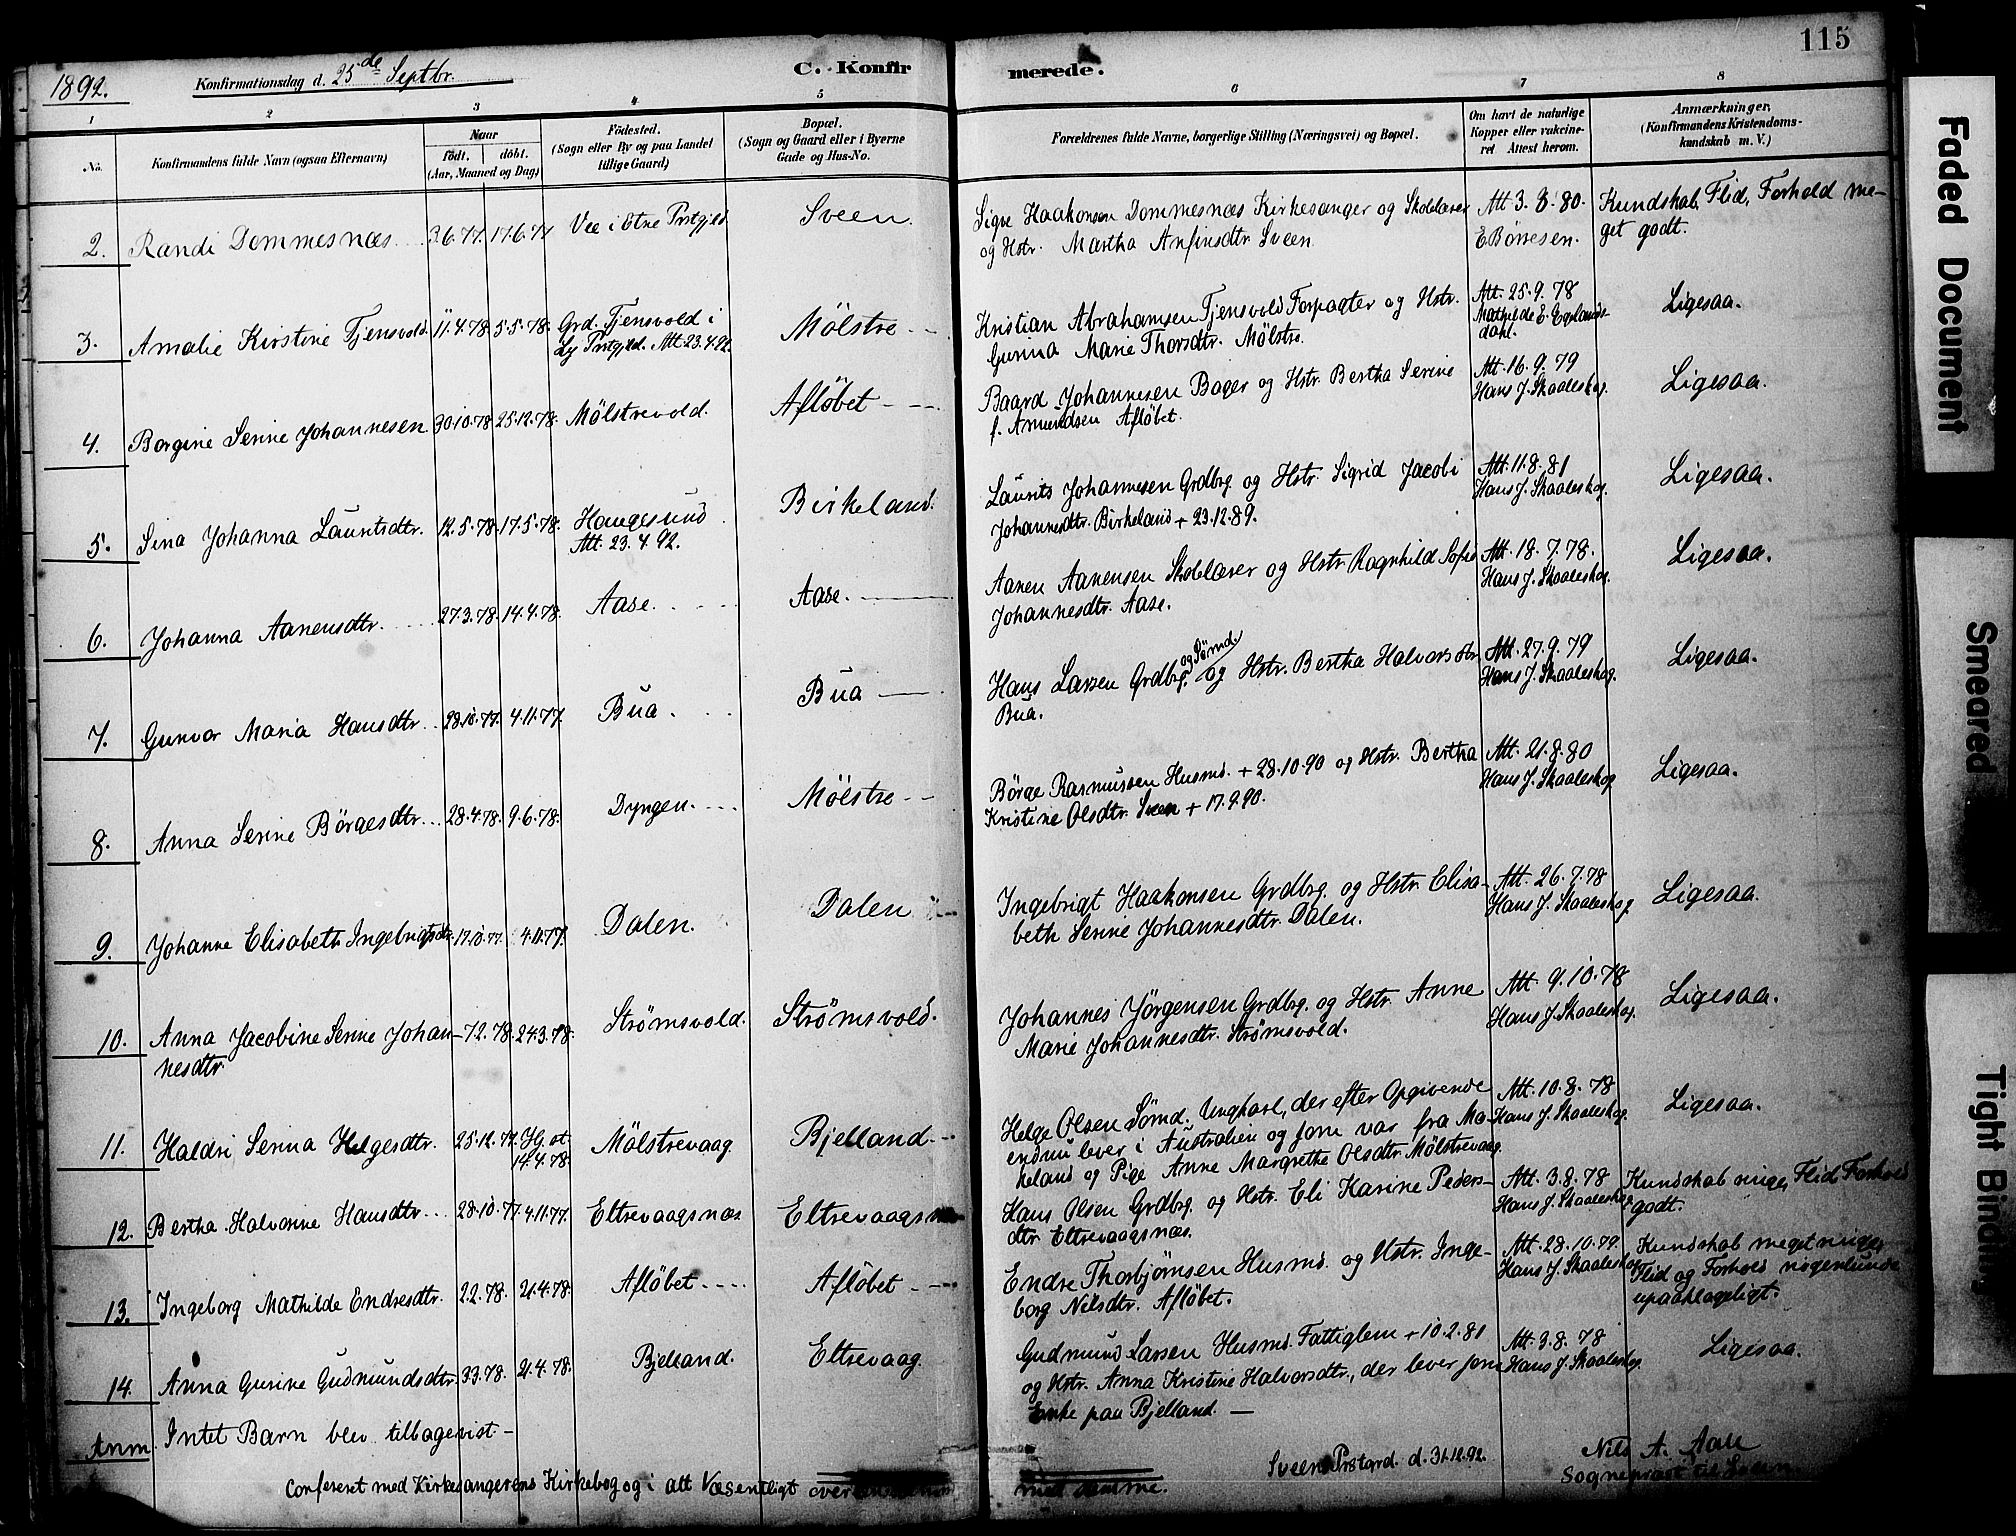 115
1892. Konfirmationsdag d. 25de Septbr. C. Konfirmerede.
1 2 3 4 5 6 7 8
No.
Konfirmandens fulde Navn (ogsaa Efternavn)
Naar
født. døbt.
(Aar, Maaned og Dag)
Födested.
(Sogn eller By og paa Landet
tillige Gaard)
Bopæl.
(Sogn og Gaard eller i Byerne
Gade og Hus-No.
Forældrenes fulde Navne, borgerlige Stilling (Næringsvei) og Bopæl.
Om havt de naturlige
Kopper eller vakcine-
ret Attest herom.
Anmærkninger,
(Konfirmandens Kristendoms-
kundskab m. V.)
2. Randi Dommesnæs 3.6.77 17.6.77 Vee i Etne Prstgjld Sveen.
Sigve Haakonsen Dommesnæs Kirkesanger og Skolelærer
og Hstr. Martha Anfinsdtr Sveen.
Att 3.8.80.
E Børresen.
Kundskab, Flid, Forhold me-
get godt.
3. Amalie Kirstine Tjensvold 11.4.78 5.5.78. Grd. Tjensvold i
Ly Prstgjld. Att 23.4.92. Mölstre
Kristian Abrahamsen Tjensvold Forpagter og Hstr.
Gurina Marie Thorsdtr. Mølstre.
Att. 25.9.78
Mathilde E. Egelands-
dahl.
Ligesaa.
4. Borgine Serine Johannesen 30.10.78 25.12.78. Mölstrevold. Afløbet
Baard Johannesen Bager og Hstr. Bertha Serine
f. Amundsen Afløbet.
Att. 16.9.79
Hans J. Skaaleskog.
Ligesaa.
5. Sina Johanna Lauritsdtr. 12.5.78 17.5.78. Haugesund
Att. 23.4.92. Birkeland.
Laurits Johannesen Grdbrg. og Hstr. Sigrid Jacobi
Johannesdtr. Birkeland + 23.12.89.
Att. 11.8.81
Hans J. Skaaleskog.
Ligesaa.
6. Johanna Aanensdtr. 27.3.78. 14.4.78. Aase. Aase.
Aanen Aanensen Skolelærer og Hstr Ragnhild Sofie
Johannesdtr. Aase.
Att. 18.7.78.
Hans J. Skaaleskog.
Ligesaa.
7. Gunvor Maria Hansdtr. 28.10.77. 4.11.77. Bua. Bua
Hans Larsen Grdbrg. og Sømd. og Hstr. Bertha Halvorsdtr
Bua.
Att. 27.9.79
Hans J. Skaaleskog.
Ligesaa.
8. Anna Serine Børgesdtr. 28.4.78. 9.6.78. Dyngen. Mölstre
Børge Rasmussen Husmd. + 28.10.90 og Hstr. Bertha
Kristine Olsdtr. Sveen + 17.9.90.
Att. 21.8.80
Hans J. Skaaleskog
Ligesaa.
9. Johanne Elisabeth Ingebrigtsdtr. 17.10.77. 4.11.77. Dalen. Dalen
Ingebrigt Haakonsen Grdbrg. og Hstr. Elisa-
beth Serine Johannesdtr. Dalen.
Att. 26.7.78
Hans J. Skaaleskog
Ligesaa.
10. Anna Jacobine Serine Johan-
nesdtr. 7.2.78. 24.3.78. Strømsvold. Strømsvold.
Johannes Jørgensen Grdbrg. og Hstr. Anne
Marie Johannesdtr. Strømsvold.
Att. 9.10.78
Hans J. Skaaleskog.
Ligesaa.
11. Haldri Serina Helgesdtr. 25.12.77. Hj. st.
14.4.78. Mølstrevaag Bjelland
Helge Olsen Sømd. Ungkarl, der efter Opgivende
endnu lever i Australien og som var fra Mæ-
keland og Pige Anne Margrethe Olsdtr Mølstrevaag
Att. 10.8.78
Hans J. Skaaleskog.
Ligesaa.
12. Bertha Halvorine Hansdtr. 28.10.77. 4.11.77. Eltrevaagsnæs Eltrevaagsnæs
Hans Olsen Grdbrg. og Hstr. Eli Karine Peders-
dtr Eltrevaagsnæs.
Att. 3.8.78
Hans J. Skaaleskog
Kundskab ringe, Flid, Forhold
godt.
13. Ingeborg Mathilde Endresdtr. 2.2.78. 21.4.78. Afløbet Afløbet
Endre Thorbjørnsen Husmd. og Hstr. Inge-
borg Nilsdtr. Afløbet.
Att. 28.10.79
Hans J. Skaaleskog
Kundskab meget ringe,
Flid og Forhold nogenlunde
upaaklageligt.
14. Anna Gurine Gudmundsdtr. 3.3.78. 21.4.78. Bjelland. Eltrevaag.
Gudmund Larsen Husmd. Fattiglem + 10.2.81
og Hstr. Anna Kristine Halvorsdtr., der lever som
Enke paa Bjelland.
Att. 3.8.78
Hans J. Skaaleskog.
Ligesaa.
Anm. Intet Barn blev tilbagevist
Sveens Prstgrd. d. 31.12.92. Nils A. Aae
Sogneprest til Sveen
Confereret med Kirkesangerens Kirkebog og i alt Væsentligt
med samme.
Faded Document
Smeared
Tight Binding